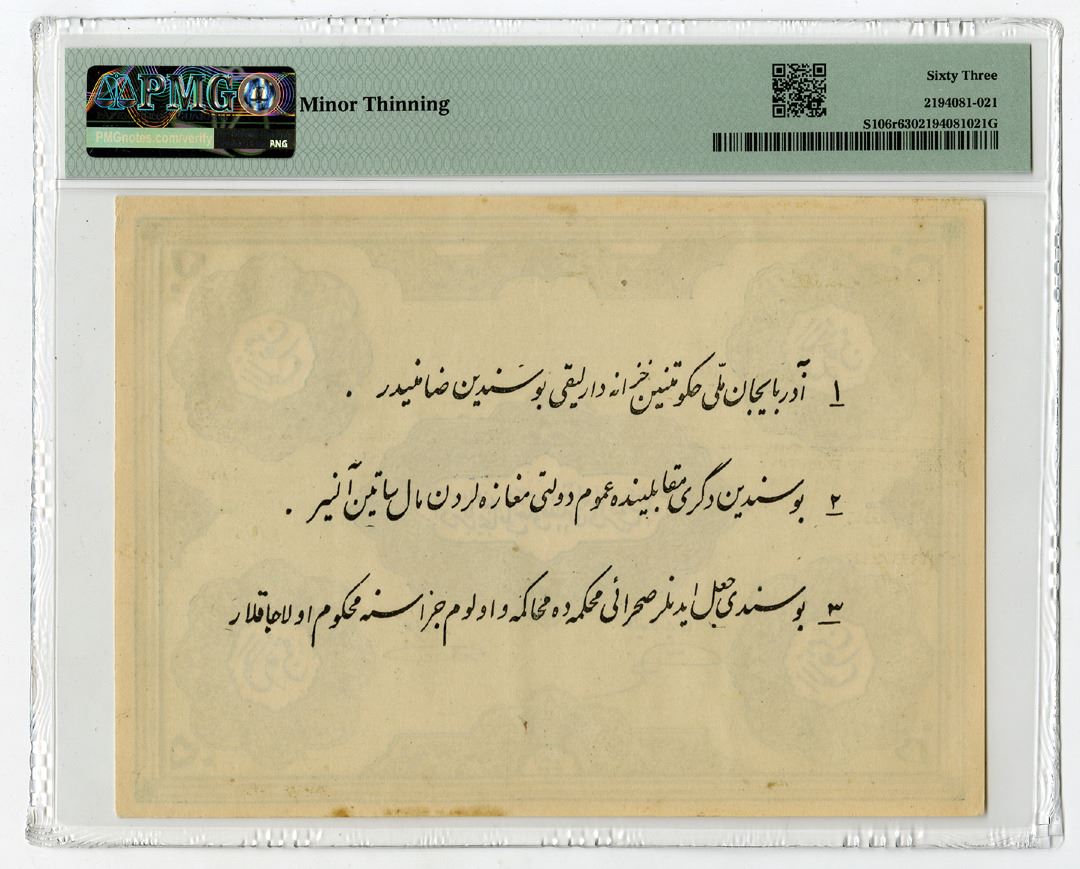 PMG
PMGnotes.com/verify
ANG
Minor Thinning
Sixty Three
2194081-021
S106r6302194081021G
۱ آذربایجان ملّی حکومتنین خزانه دارلیقی بوسندین ضامنیدر .
۲ بوسندین دگری مقابلینده عموم دولتی مغازه لردن مال ساتین آلنیر .
۳ بوسندی جعل ایدنلر صحرائی محکمه ده محاکمه و اولوم جزاسنه محکوم اولاجاقلار